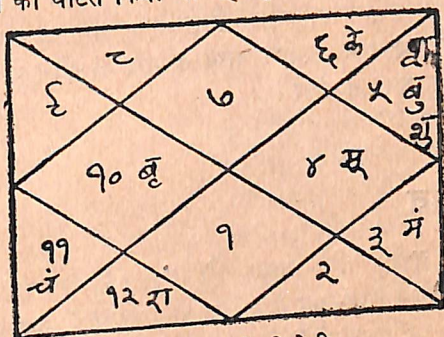 ८
६ के
९
७
५
श
बु
शु
१० बृ
४ सू
११
चं
१
३ मं
१२ रा
२